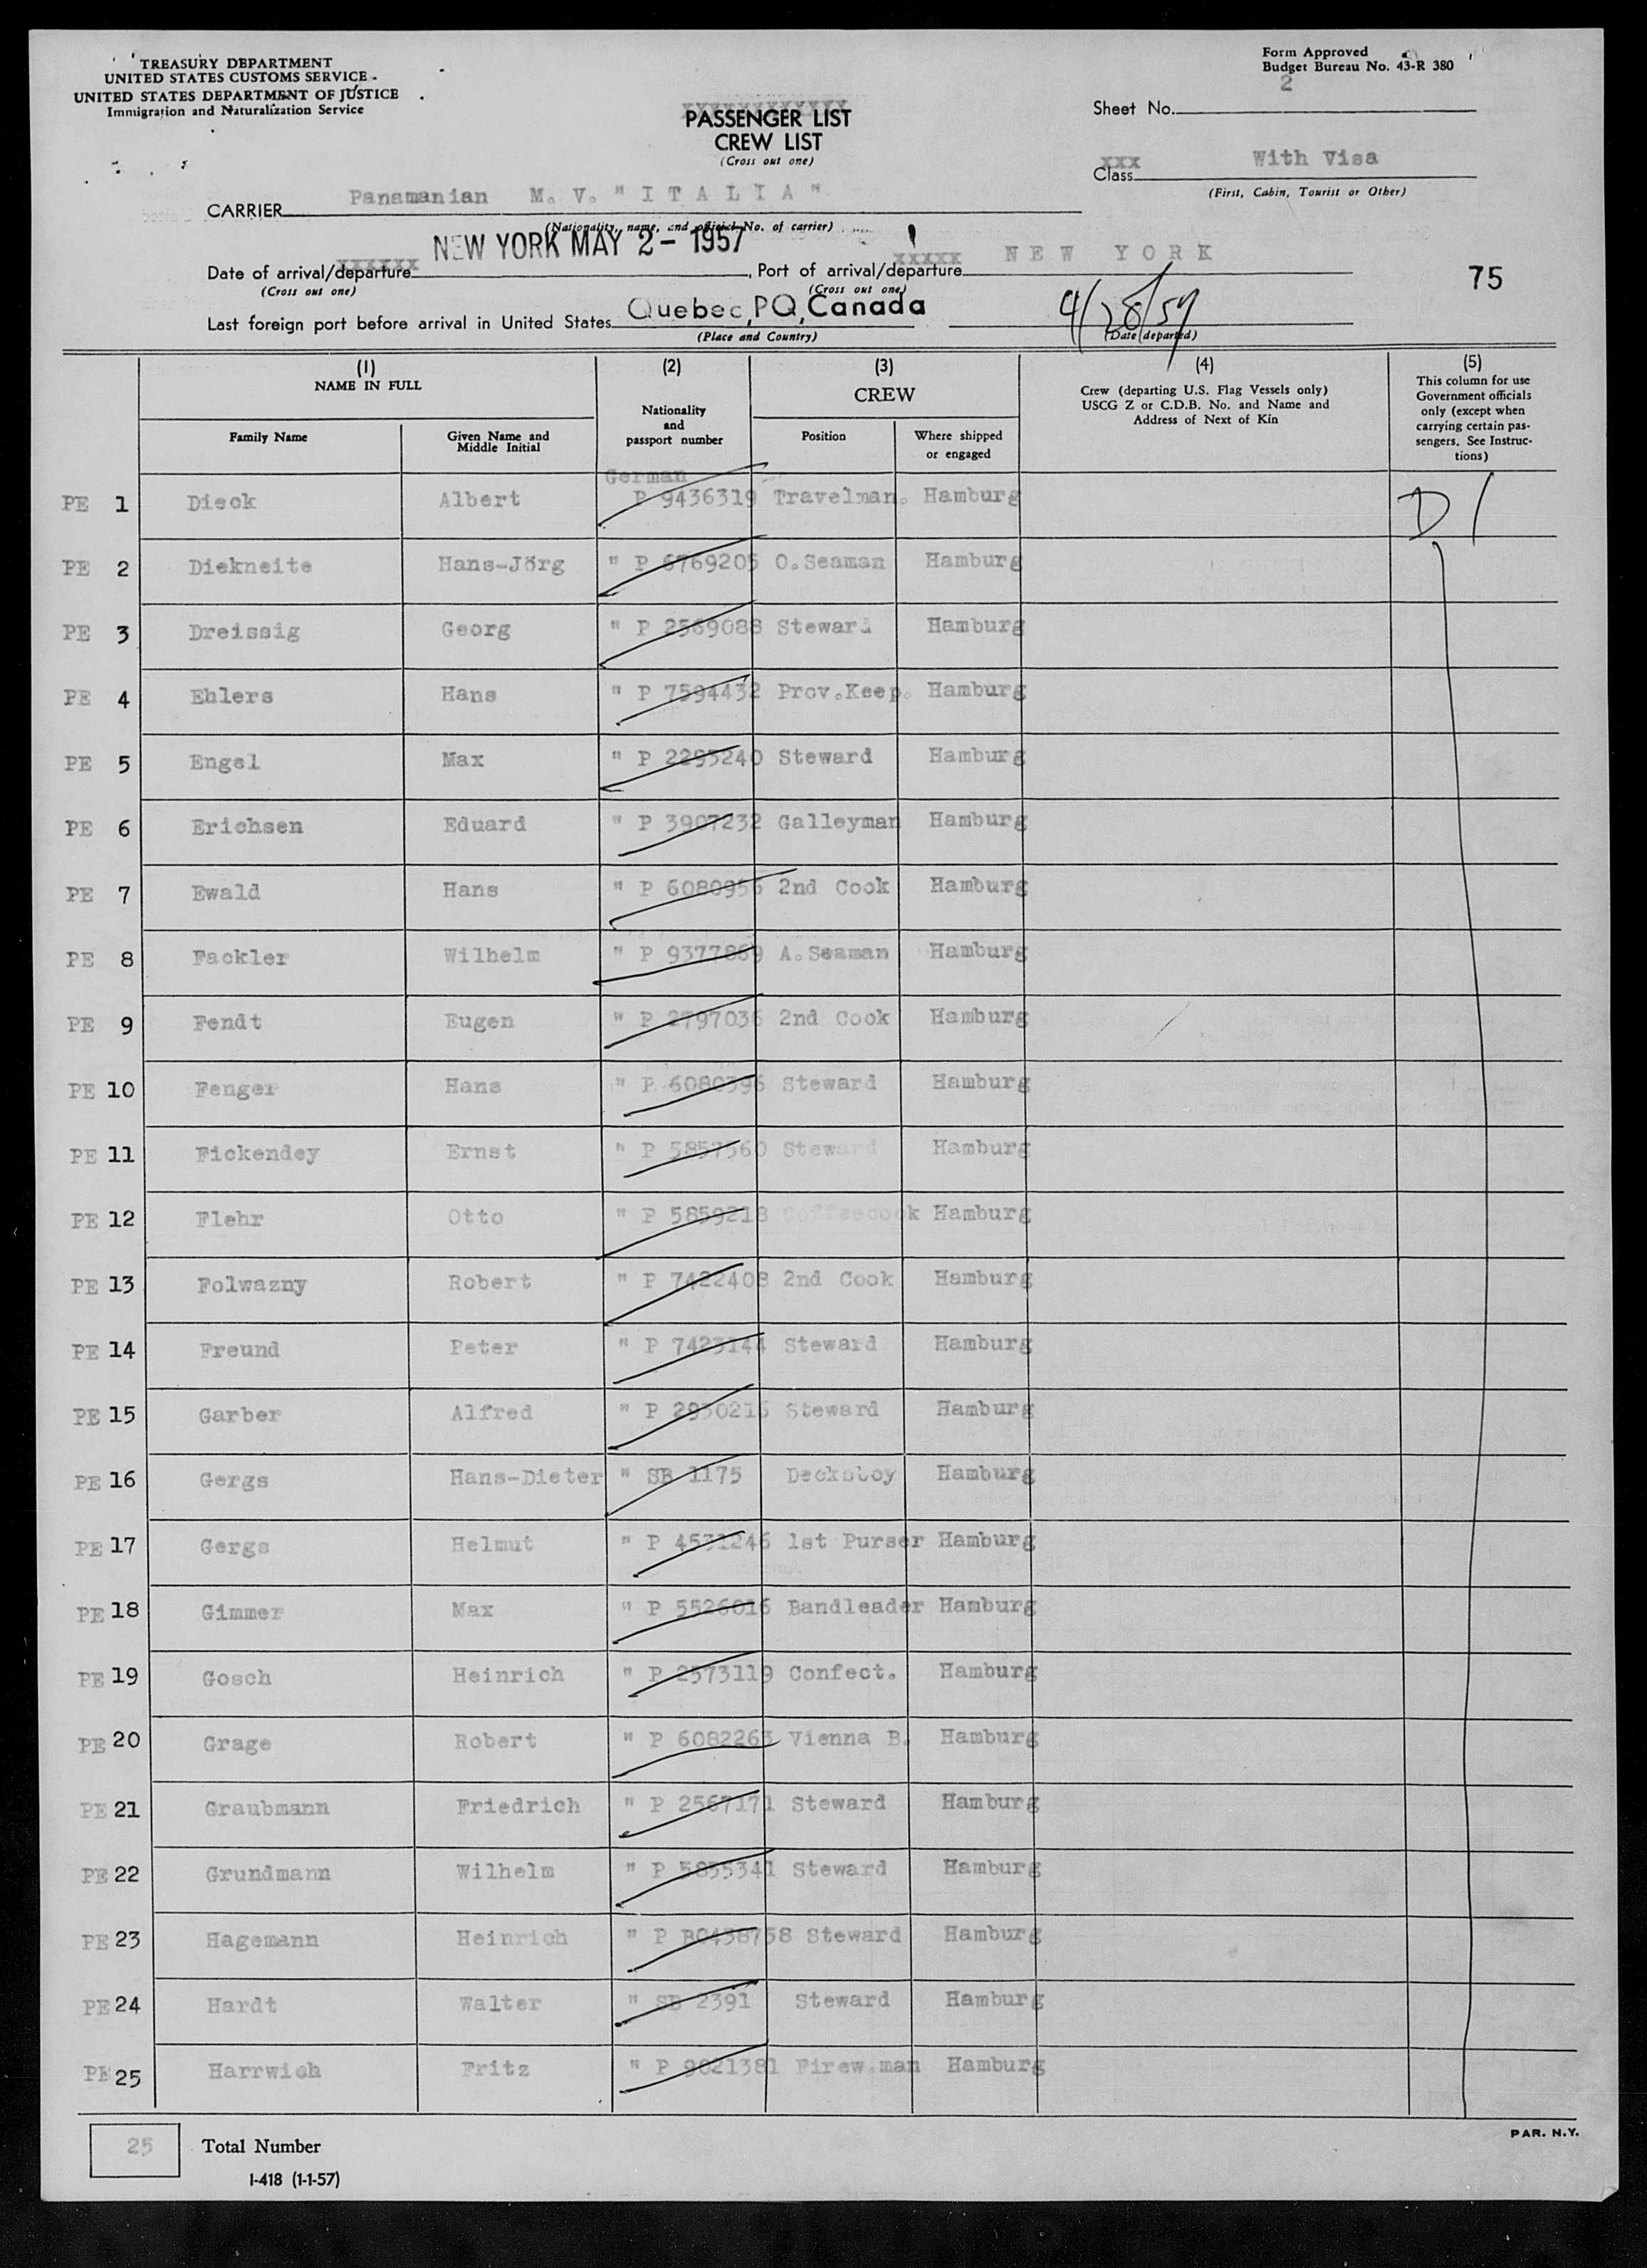 TREASURY DEPARTMENT
UNITED STATES CUSTOMS SERVICE
UNITED STATES DEPARTMENT OF JUSTICE
Immigration and Naturalization Service
Form Approved
Budget Bureau No. 43-R 380
Sheet No. 2
xxxxxxxxxxxxx
PASSENGER LIST
CREW LIST
(Cross out one)
xxx
Class With Visa
(First, Cabin, Tourist or Other)
CARRIER Panamanian M. V. "I T A L I A"
(Nationality, name, and official No. of carrier)
Date of arrival/departure NEW YORK MAY 2 - 1957, Port of arrival/departure N E W Y O R K
(Cross out one) (Cross out one)
75
Last foreign port before arrival in United States Quebec, PQ, Canada 4/28/57
(Place and Country) (Date departed)
(1) NAME IN FULL
Family Name
Given Name and Middle Initial
(2) Nationality and passport number
(3) CREW
Position
Where shipped or engaged
(4) Crew (departing U.S. Flag Vessels only) USCG Z or C.D.B. No. and Name and Address of Next of Kin
(5) This column for use Government officials only (except when carrying certain passengers. See Instructions)
German
PE 1 Dieck Albert P 9436319 Travelman. Hamburg D 1
PE 2 Diekneite Hans-Jörg " P 6769205 O.Seaman Hamburg
PE 3 Dreissig Georg " P 2569088 Steward Hamburg
PE 4 Ehlers Hans " P 7594432 Prov.Keep. Hamburg
PE 5 Engel Max " P 2293240 Steward Hamburg
PE 6 Erichsen Eduard " P 3907232 Galleyman Hamburg
PE 7 Ewald Hans " P 6080956 2nd Cook Hamburg
PE 8 Fackler Wilhelm " P 9377869 A.Seaman Hamburg
PE 9 Fendt Eugen " P 2797036 2nd Cook Hamburg
PE 10 Fenger Hans " P 6080396 Steward Hamburg
PE 11 Fickendey Ernst " P 5857560 Steward Hamburg
PE 12 Flehr Otto " P 5859218 Coffeecook Hamburg
PE 13 Folwazny Robert " P 7422408 2nd Cook Hamburg
PE 14 Freund Peter " P 7423144 Steward Hamburg
PE 15 Garber Alfred " P 2930216 Steward Hamburg
PE 16 Gergs Hans-Dieter " SB 1175 Decksboy Hamburg
PE 17 Gergs Helmut " P 4531246 1st Purser Hamburg
PE 18 Gimmer Max " P 5526016 Bandleader Hamburg
PE 19 Gosch Heinrich " P 2573119 Confect. Hamburg
PE 20 Grage Robert " P 6082263 Vienna B. Hamburg
PE 21 Graubmann Friedrich " P 2567171 Steward Hamburg
PE 22 Grundmann Wilhelm " P 5855341 Steward Hamburg
PE 23 Hagemann Heinrich " P B0438758 Steward Hamburg
PE 24 Hardt Walter " SB 2391 Steward Hamburg
PE 25 Harrwich Fritz " P 9021381 Firew.man Hamburg
25 Total Number
I-418 (1-1-57)
PAR. N.Y.